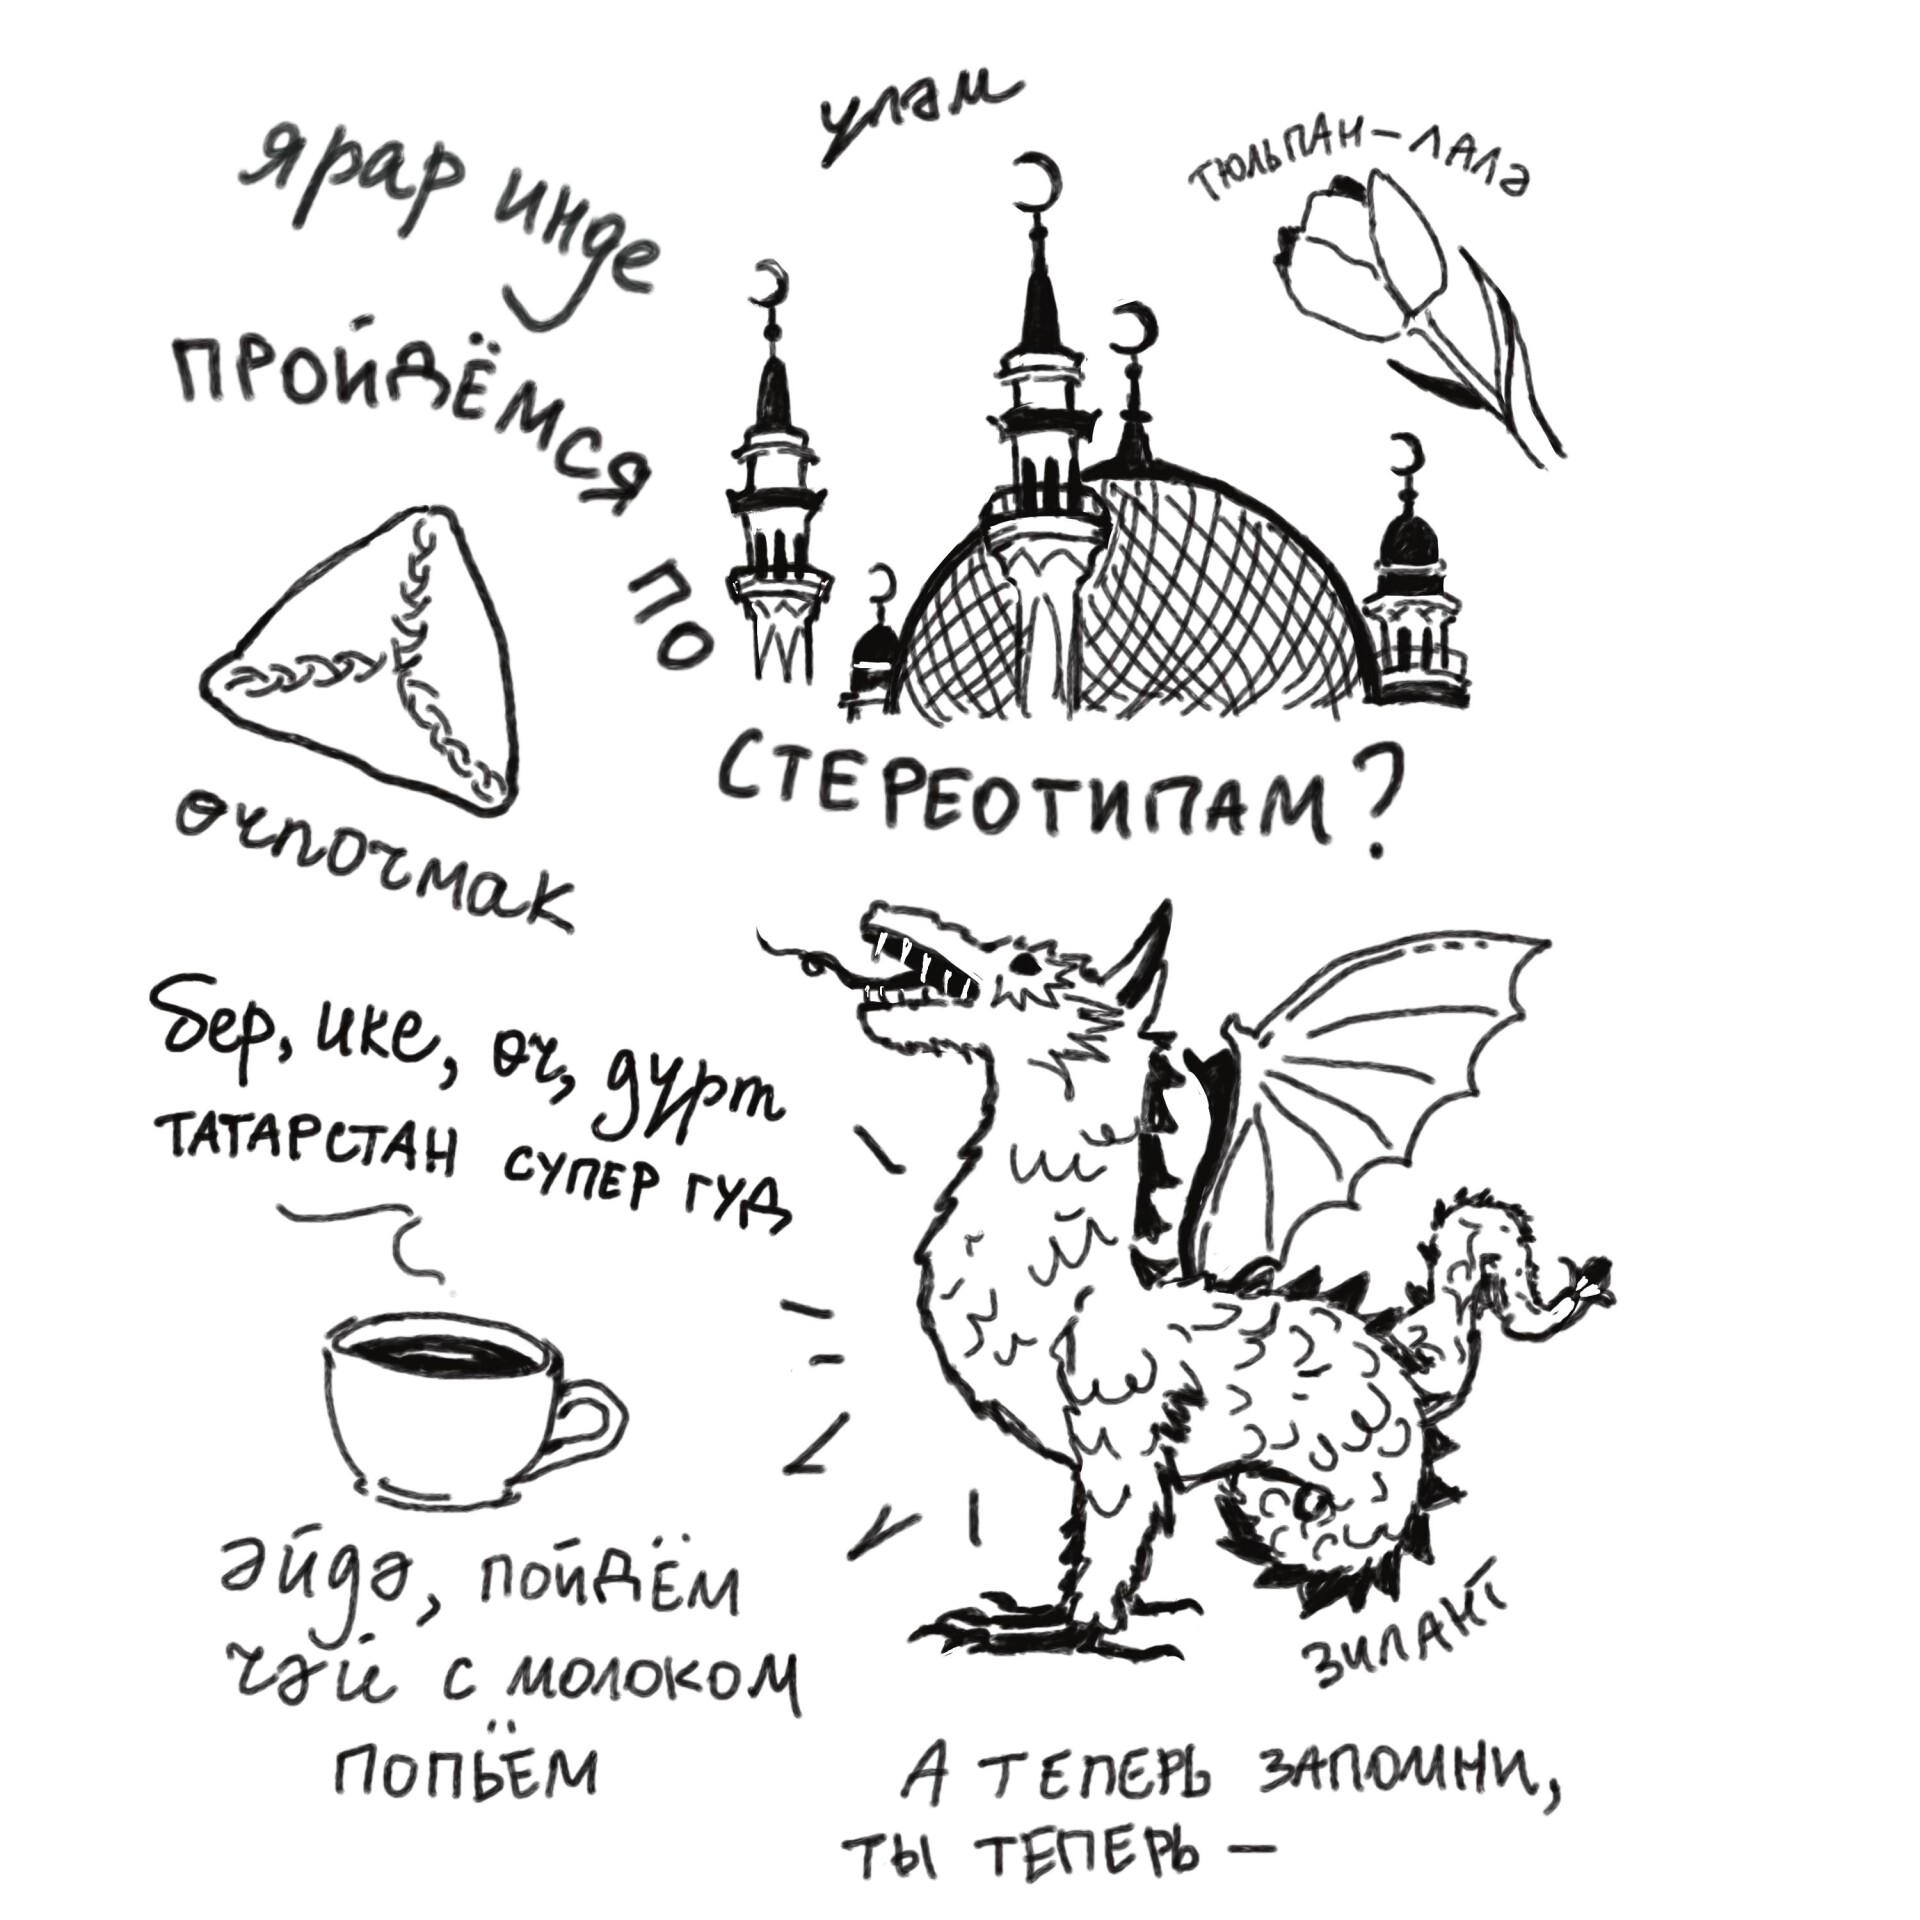 улəм
тюльпан-лалə
ярар инде
пройдёмся
по
стереотипам?
өчпочмак
бер, ике, өч, дүрт
татарстан супер гуд
əйдə, пойдём
чəй с молоком
попьём
зилант
А теперь запомни,
ты теперь —